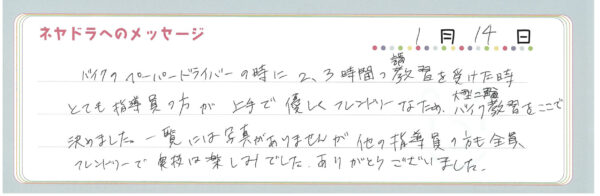 ネヤドラへのメッセージ
1月14日
バイクのペーパードライバーの時に2、3時間の講習を受けた時
とても指導員の方が上手で優しくフレンドリーなため、大型二輪教習をここで
決めました。一覧には写真がありませんが他の指導員の方も全員
フレンドリーで実技は楽しみでした。ありがとうございました。